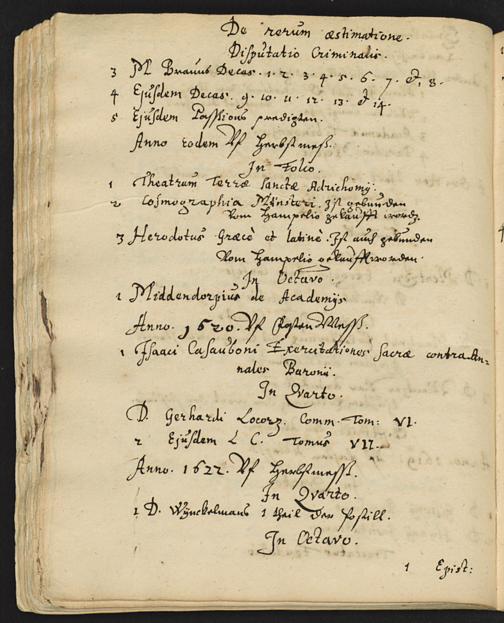 De rerum æstimatione.
Disputatio Criminalis.
3 M Brauns Decas. 1. 2. 3. 4. 5. 6. 7. et, 8.
4 Ejusdem Decas. 9. 10. 11. 12. 13. et 14
5 Ejusdem Passions predigten.
Anno eodem Vf Herbstmess.
In Folio.
1 Theatrum Terræ Sanctæ Adrichomij.
2 Cosmographia Münsteri. Ist gebunden
Vom Hampelio gekaufft word.
3 Herodotus Græcè et latinè. Ist auch gebunden
Vom Hampelio gekaufft worden.
In Octavo.
1 Middendorpius de Academijs
Anno. 1620. Vf Ostermess.
1 Isaaci Casauboni Exercitationes Sacræ contra An-
nales Baronii.
In Qvarto.
D. Gerhardi Locor. Comm. Tom: VI.
2 Ejusdem L C. Tomus VII.
Anno. 1622. Vf Herbstmess.
In Qvarto.
1 D. Wynckelmans 1 theil der Postill.
In Octavo.
1 Epist: